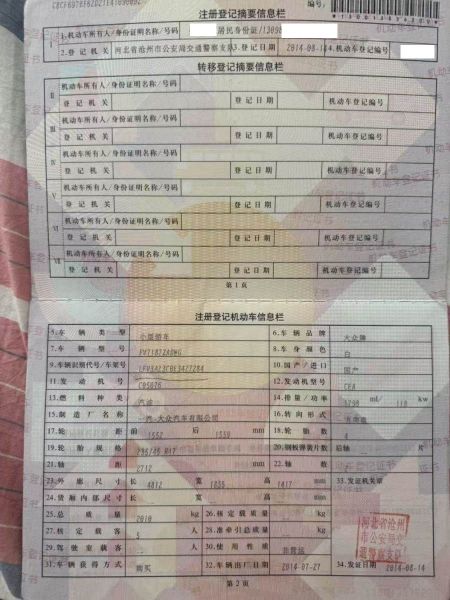 注册登记摘要信息栏
I 1.机动车所有人/身份证明名称/号码 居民身份证/1309
2.登记机关 河北省沧州市公安局交通警察支队 3.登记日期 2014-08-14 4.机动车登记编号
转移登记摘要信息栏
II 机动车所有人/身份证明名称/号码
登记机关 登记日期 机动车登记编号
III 机动车所有人/身份证明名称/号码
登记机关 登记日期 机动车登记编号
IV 机动车所有人/身份证明名称/号码
登记机关 登记日期 机动车登记编号
V 机动车所有人/身份证明名称/号码
登记机关 登记日期 机动车登记编号
VI 机动车所有人/身份证明名称/号码
登记机关 登记日期 机动车登记编号
VII 机动车所有人/身份证明名称/号码
登记机关 登记日期 机动车登记编号
第1页
注册登记机动车信息栏
5.车辆类型 小型轿车 6.车辆品牌 大众牌
7.车辆型号 8.车身颜色 白
9.车辆识别代号/车架号 10.国产/进口 国产
11.发动机号 12.发动机型号 CEA
13.燃料种类 汽油 14.排量/功率 1798 ml/ 118 kw
15.制造厂名称 一汽-大众汽车有限公司 16.转向形式
17.轮距 前 1552 后 1550 mm 18.轮胎数 4
19.轮胎规格 235/45 R17 20.钢板弹簧片数 后轴 片
21.轴距 2712 mm 22.轴数 2
23.外廓尺寸 长 4812 宽 1855 高 1417 mm 33.发证机关章
24.货厢内部尺寸 长 宽 高 mm
25.总质量 2010 kg 26.核定载质量 kg
27.核定载客 5 人 28.准牵引总质量 kg
29.驾驶室载客 人 30.使用性质 非营运
31.车辆获得方式 购买 32.车辆出厂日期 2014-07-27 34.发证日期 2014-08-14
河北省沧州
市公安局交
通警察支队
第2页